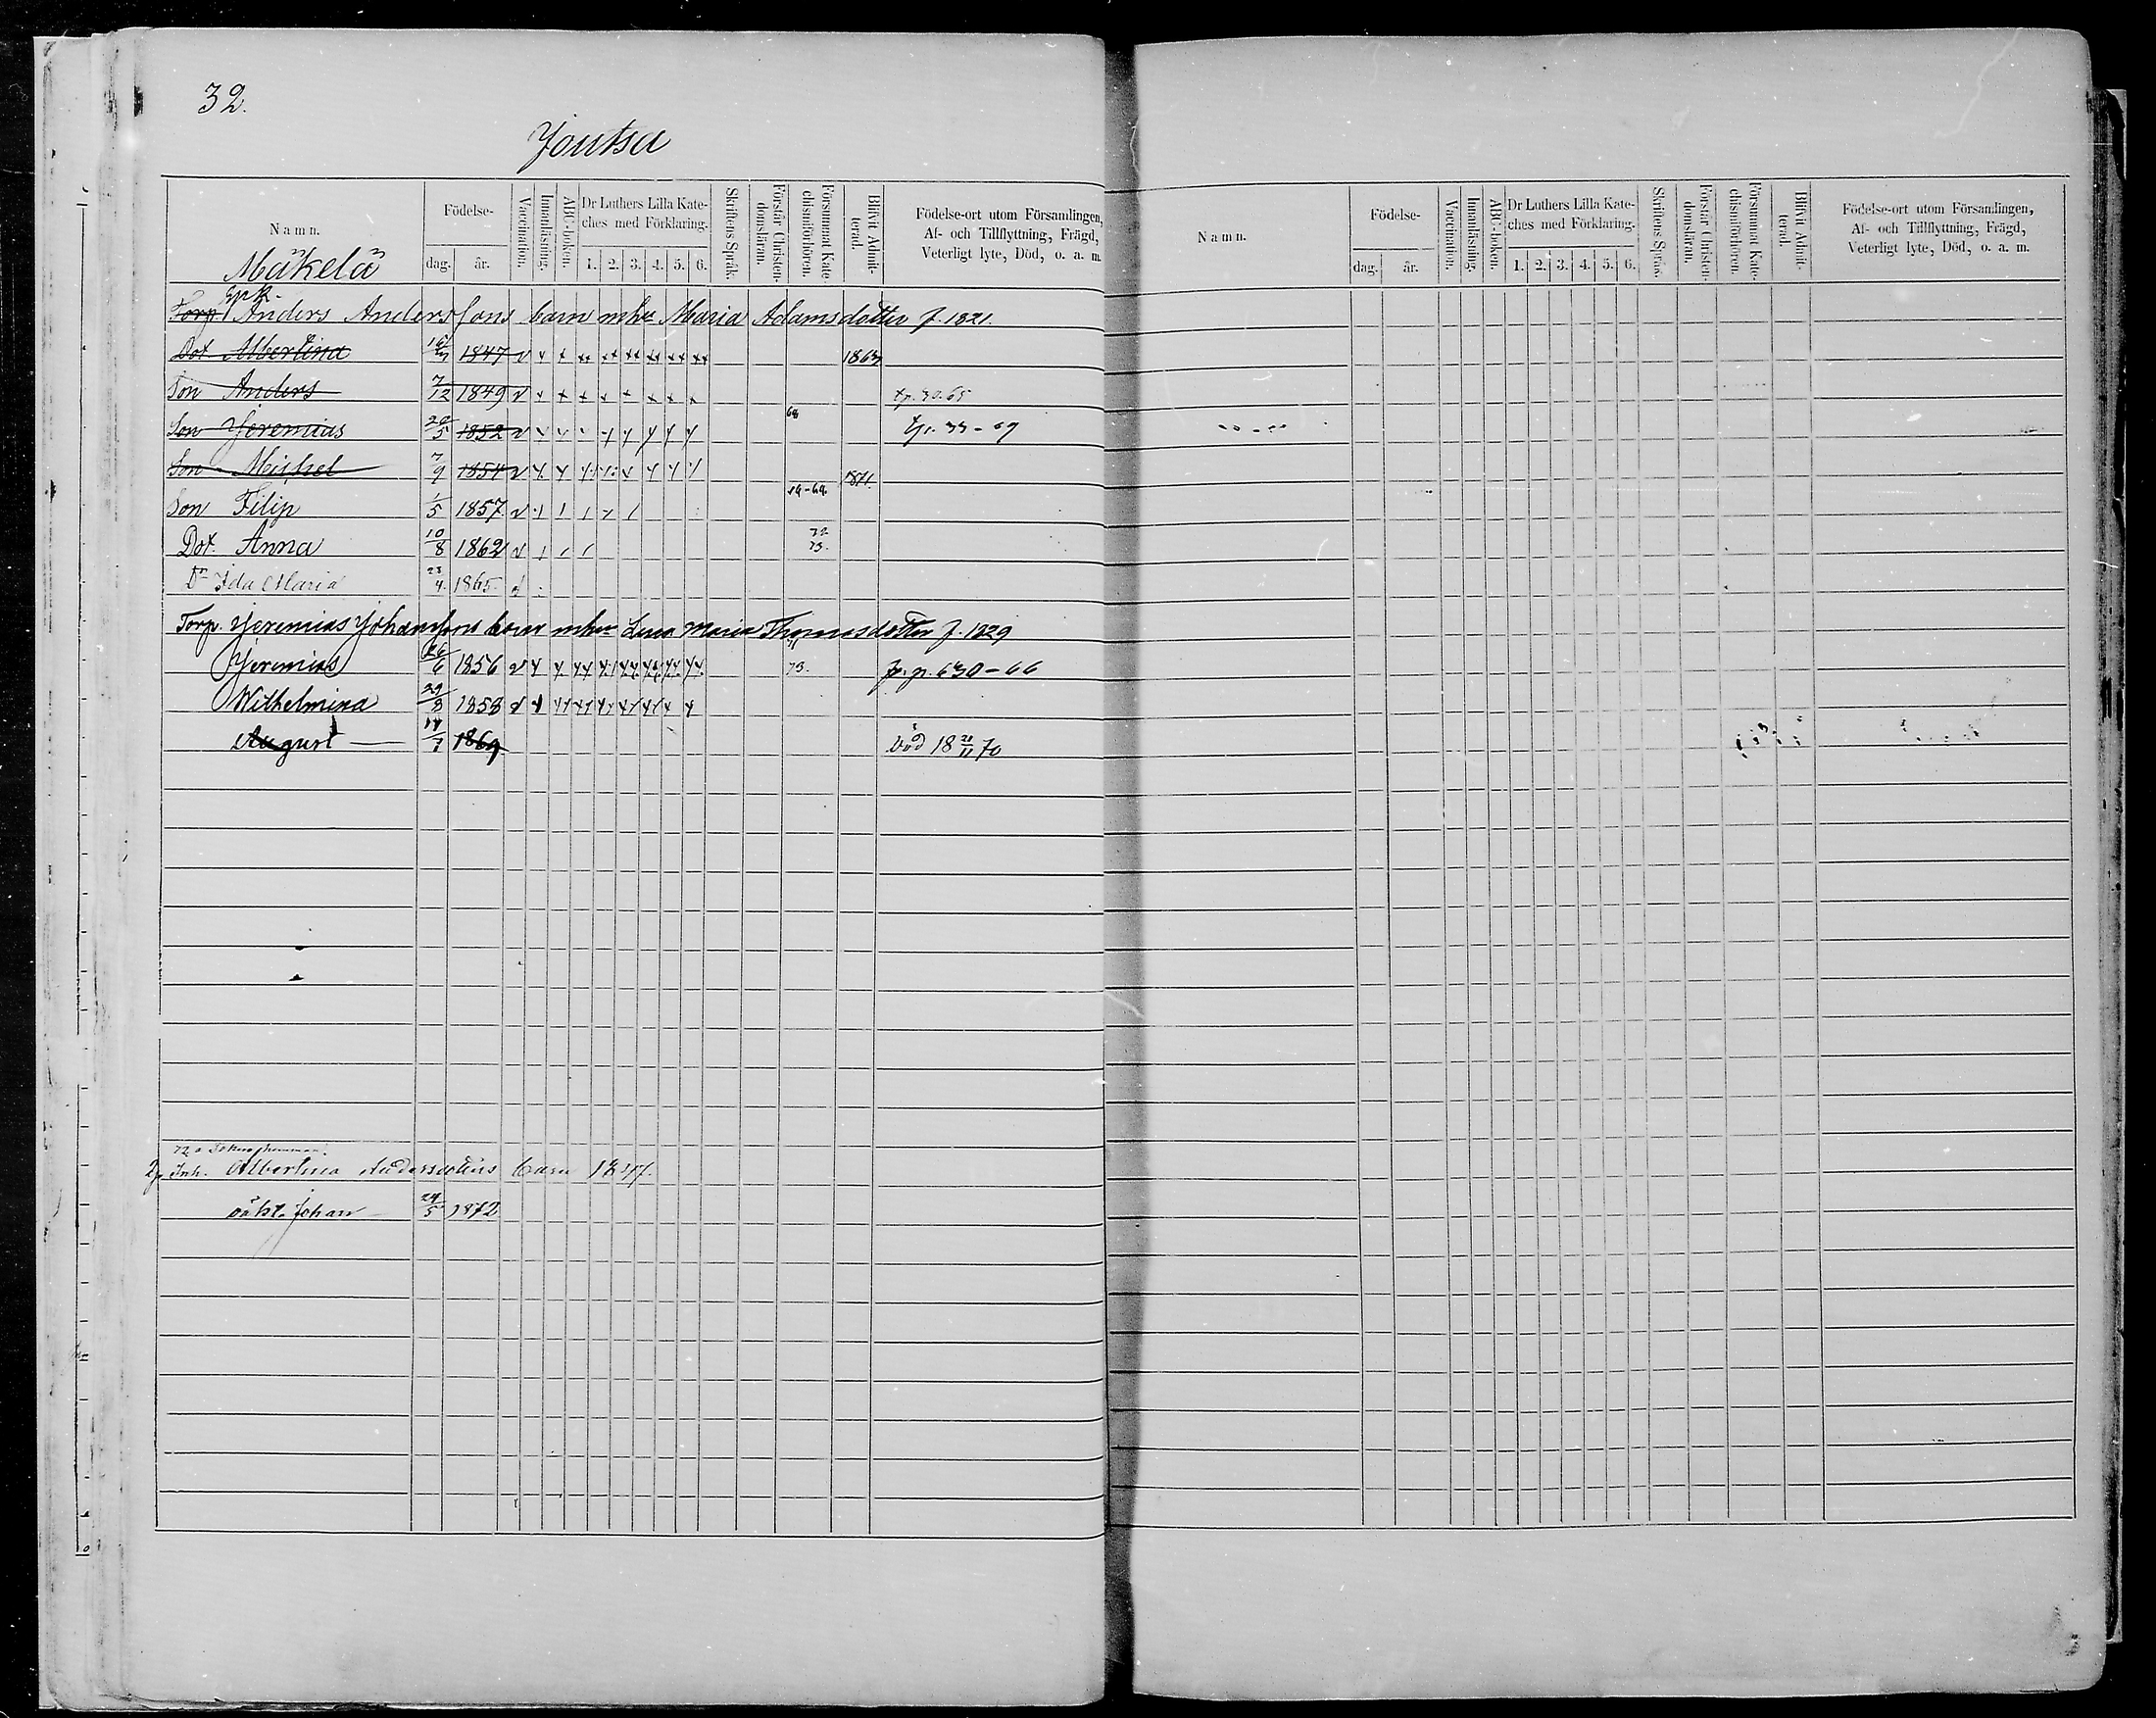 32.
Joutsa
Namn. Födelse- dag. år. Vaccination. Innanläsning. ABC-boken. Dr Luthers Lilla Kateches med Förklaring. 1. 2. 3. 4. 5. 6. Skriftens Språk. Förstår Christendomsläran. Försummat Katechismiförhören. Blifvit Admitterad. Födelse-ort utom Församlingen, Af- och Tillflyttning, Frägd, Veterligt lyte, Död, o. a. m.
Mäkelä
Torp. Anders Anderssons barn mhu Maria Adamsdotter f. 1821.
Dot. Albertina 1847 v 1863
Son Anders 7/12 1849 v
Son Jeremias 20/5 1852 v 68 tp. 33-69
Son Michel 7/9 1854 v 1871.
Son Filip 1/5 1857 v
Dot. Anna 10/8 1862 v 72 73.
Dr Ida Maria 23/4 1865 v
Torp. Jeremias Johanssons barn mhu Lena Maria Thomasdotter f. 1829
Jeremias 26/6 1856 v 73. fr. p. 630-66
Wilhelmina 29/8 1858 v
August 1869 Död 18 /11 70
Inh. Albertina Andersdotters barn 1847.
oäkt. Johan 24/5 1872
Namn. Födelse- dag. år. Vaccination. Innanläsning. ABC-boken. Dr Luthers Lilla Kateches med Förklaring. 1. 2. 3. 4. 5. 6. Skriftens Språk. Förstår Christendomsläran. Försummat Katechismiförhören. Blifvit Admitterad. Födelse-ort utom Församlingen, Af- och Tillflyttning, Frägd, Veterligt lyte, Död, o. a. m.